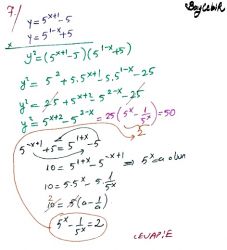 BayCebir
7)
y = 5^(x+1) - 5
x y = 5^(1-x) + 5
y² = (5^(x+1) - 5)(5^(1-x) + 5)
y² = 5² + 5.5^(x+1) - 5.5^(1-x) - 25
y² = 25 + 5^(x+2) - 5^(2-x) - 25
y² = 5^(x+2) - 5^(2-x) = 25(5^x - 1/5^x) = 50
2
5^(-x+1) + 5 = 5^(1+x) - 5
10 = 5^(1+x) - 5^(-x+1) ⇒ 5^x = a olsun
10 = 5.5^x - 5.1/5^x
2 10 = 5(a - 1/a)
5^x - 1/5^x = 2
CEVAP: E